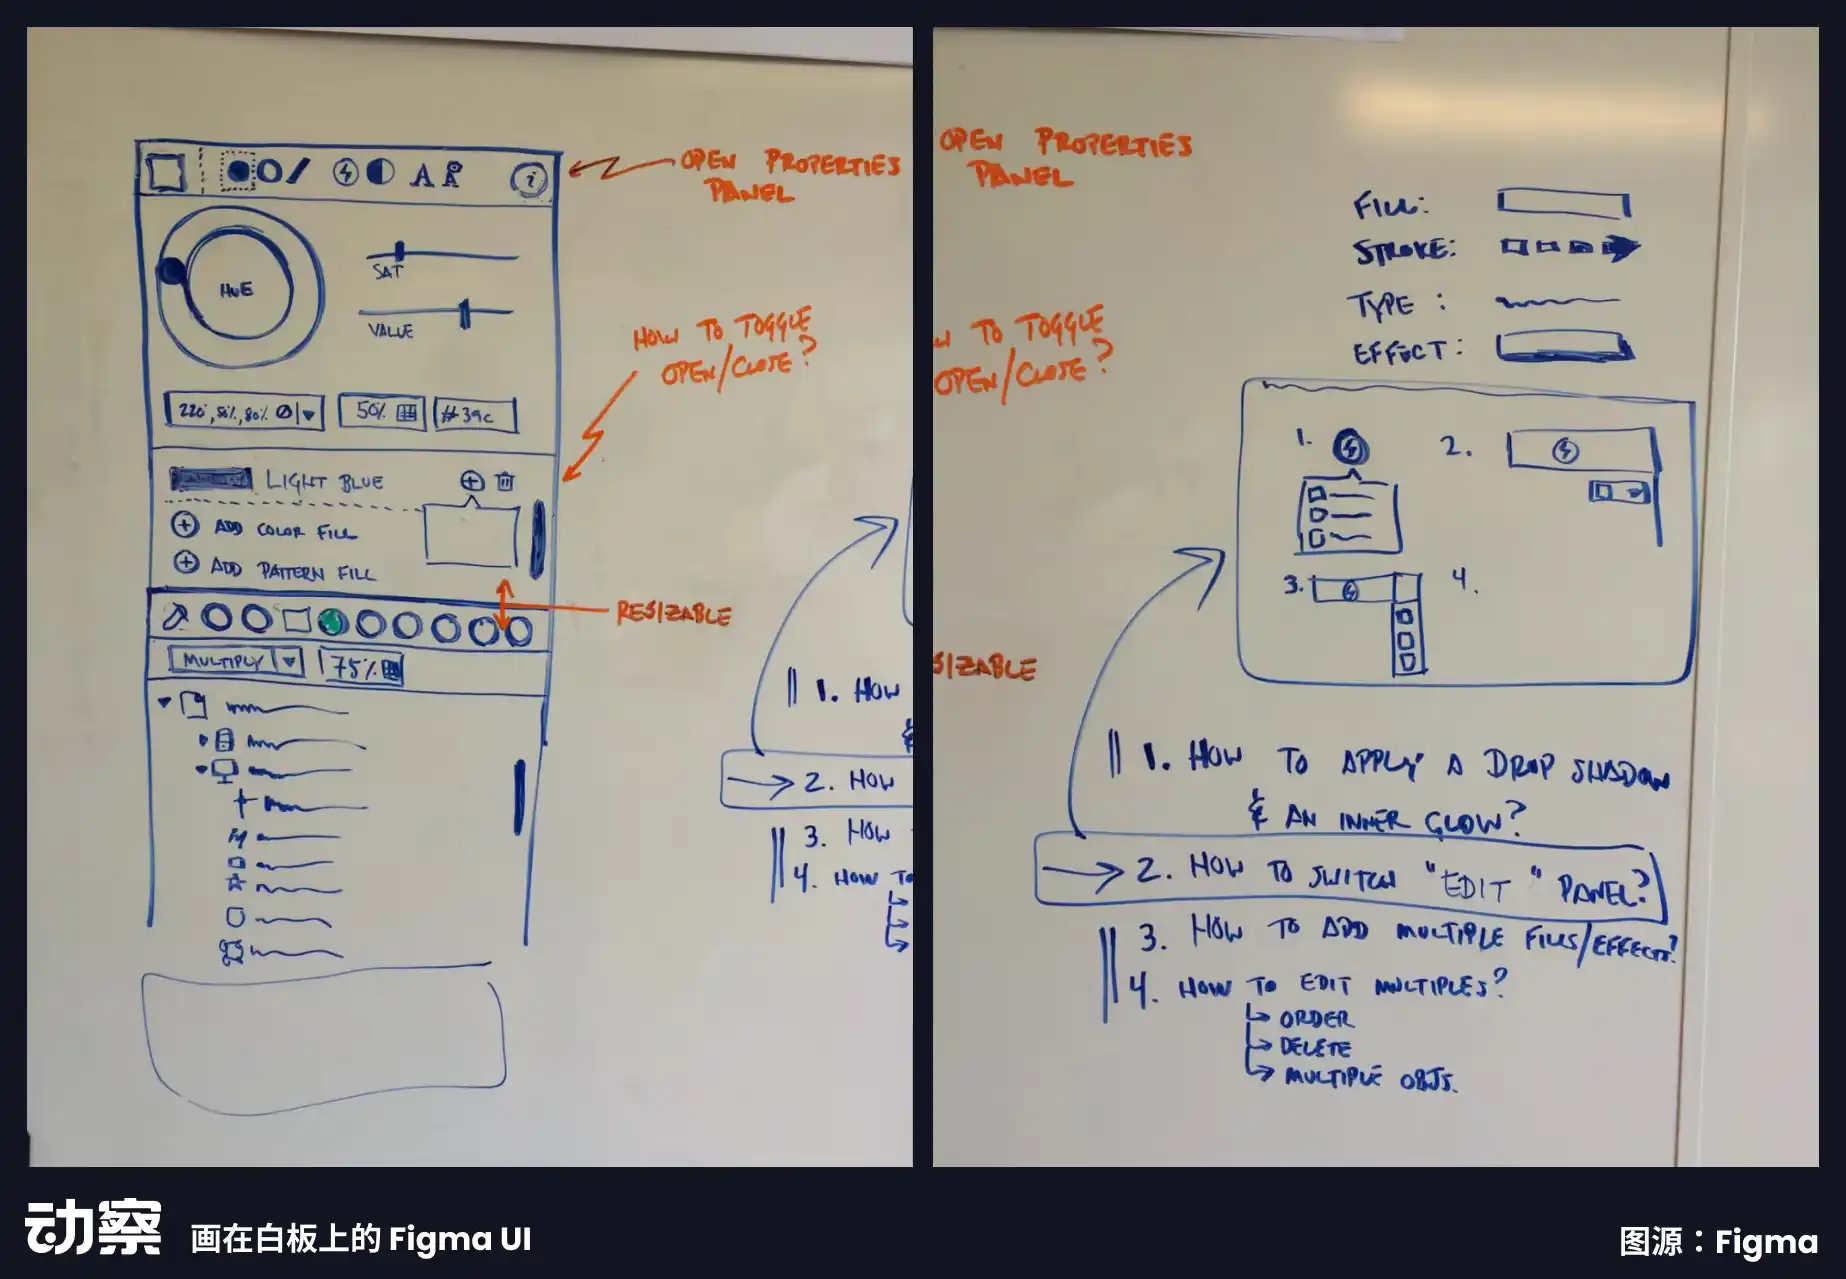 A A i
OPEN PROPERTIES
PANEL
HUE
SAT
VALUE
HOW TO TOGGLE
OPEN/CLOSE?
220°, 50%, 80%
50%
#39c
LIGHT BLUE
ADD COLOR FILL
ADD PATTERN FILL
RESIZABLE
MULTIPLY
75%
1. HOW
&
2. HOW
3. HOW
4. HOW TO
OPEN PROPERTIES
PANEL
W TO TOGGLE
OPEN/CLOSE?
SIZABLE
FILL:
STROKE:
TYPE :
EFFECT:
1.
2.
3.
4.
1. HOW TO APPLY A DROP SHADOW
& AN INNER GLOW?
2. HOW TO SWITCH "EDIT" PANEL?
3. HOW TO ADD MULTIPLE FILLS/EFFECTS?
4. HOW TO EDIT MULTIPLES?
ORDER
DELETE
MULTIPLE OBJS.
动察
画在白板上的 Figma UI
图源：Figma